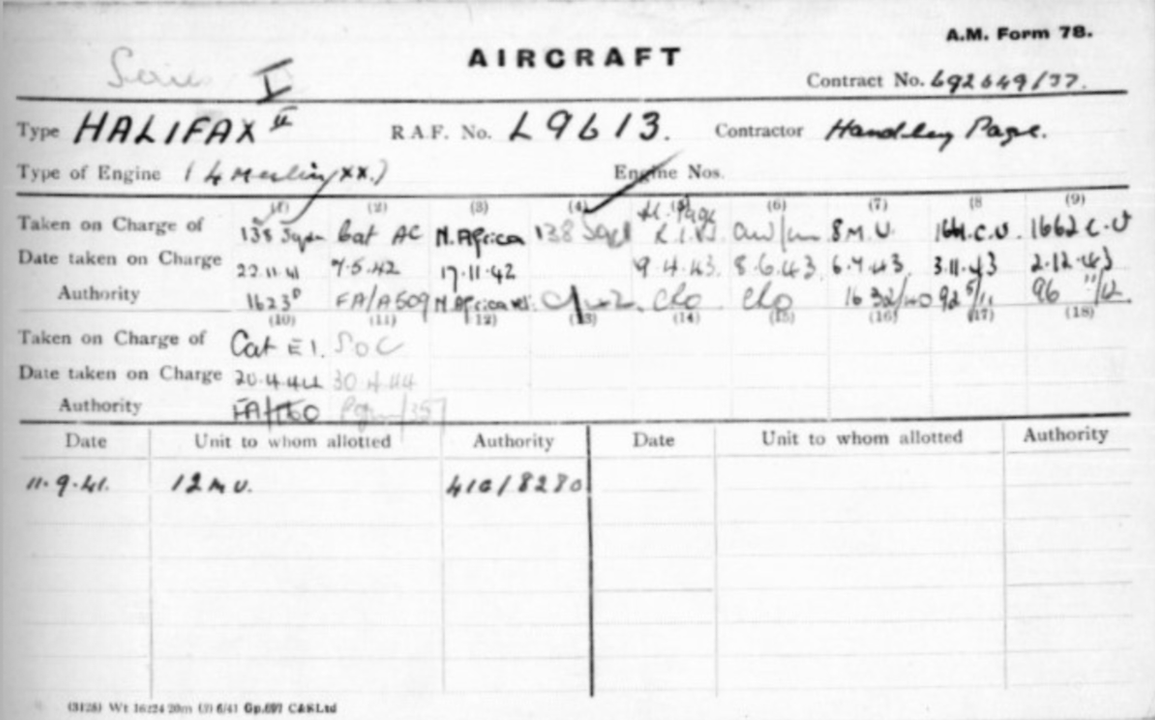 A.M. Form 78.
I AIRCRAFT
Contract No. 692649/37.
Type HALIFAX II R.A.F. No. L9613. Contractor Handley Page.
Type of Engine (4 Merlin XX.) Engine Nos.
(1) (2) (3) (4) (5) (6) (7) (8 (9)
H. Page
Taken on Charge of 138 Sqdn Cat AC N. Africa 138 Sqd 8 M.U. 1662 C.U
Date taken on Charge 22.11.41 7.5.42 17.11.42 9.4.43. 8.6.43 6.7.43. 3.11.43 2.12.43
Authority 1623D FA/A509 N Africa clo clo 1632/ 96
(10) (11) (12) (13) (14) (15) (16) (17) (18)
Taken on Charge of Cat E1. SOC
Date taken on Charge 20.4.44 30.4.44
Authority
Date Unit to whom allotted Authority Date Unit to whom allotted Authority
11.9.41. 12 M.U. 41G/8280
(3128) Wt 20m 6/41 Gp.697 C&SLtd